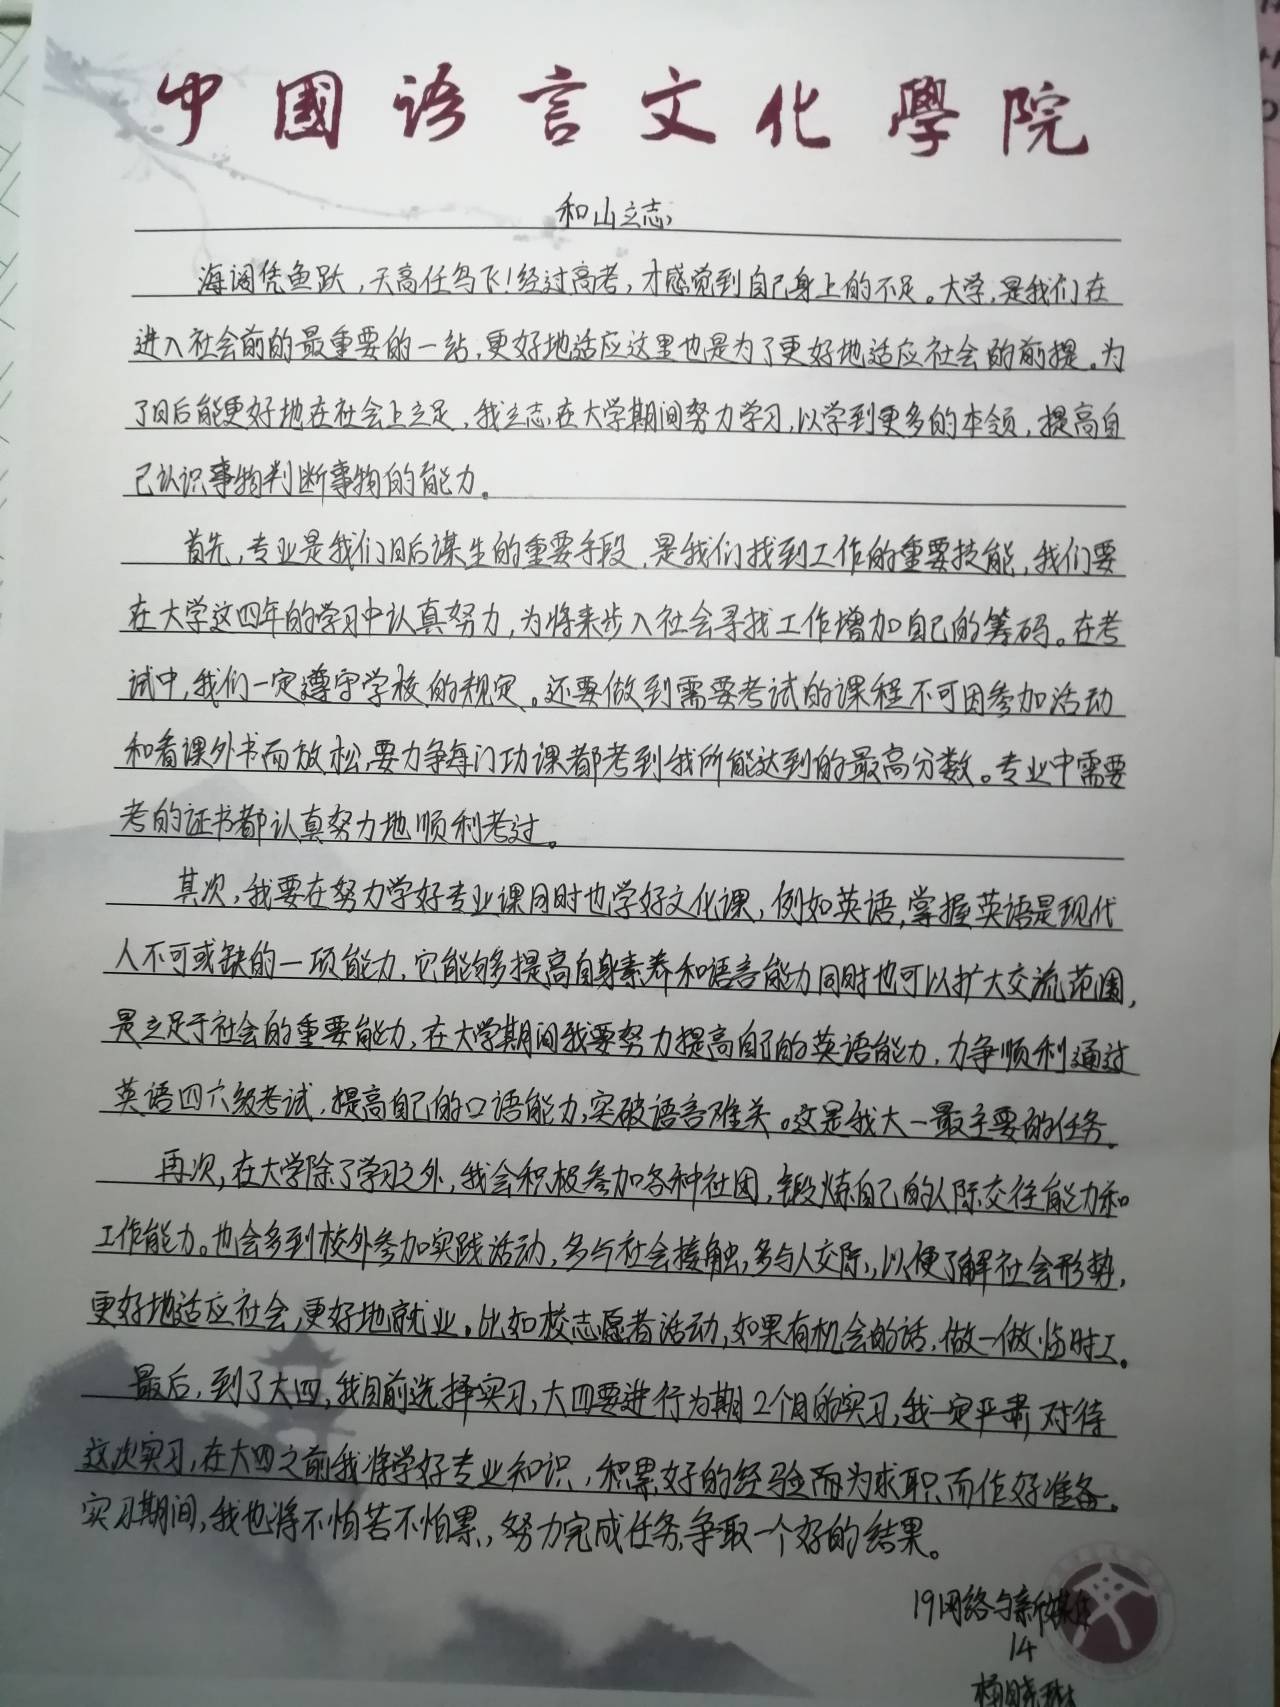 中國语言文化學院
和山立志
海阔凭鱼跃，天高任鸟飞！经过高考，才感觉到自己身上的不足。大学，是我们在
进入社会前的最重要的一站，更好地适应这里也是为了更好地适应社会的前提。为
了日后能更好地在社会上立足，我立志在大学期间努力学习，以学到更多的本领，提高自
己认识事物判断事物的能力。
首先，专业是我们日后谋生的重要手段，是我们找到工作的重要技能，我们要
在大学这四年的学习中认真努力，为将来步入社会寻找工作增加自己的筹码。在考
试中，我们一定遵守学校的规定。还要做到需要考试的课程不可因参加活动
和看课外书而放松，要力争每门功课都考到我所能达到的最高分数。专业中需要
考的证书都认真努力地顺利考过。
其次，我要在努力学好专业课同时也学好文化课，例如英语，掌握英语是现代
人不可或缺的一项能力，它能够提高自身素养和语言能力同时也可以扩大交流范围，
是立足于社会的重要能力，在大学期间我要努力提高自己的英语能力，力争顺利通过
英语四六级考试，提高自己的口语能力，突破语言难关。这是我大一最主要的任务。
再次，在大学除了学习之外，我会积极参加各种社团，锻炼自己的人际交往能力和
工作能力。也会多到校外参加实践活动，多与社会接触，多与人交际，以便了解社会形势，
更好地适应社会，更好地就业。比如校志愿者活动，如果有机会的话，做一做临时工。
最后，到了大四，我目前选择实习，大四要进行为期2个月的实习，我一定严肃对待
这次实习，在大四之前我将学好专业知识，积累好的经验而为求职而作好准备。
实习期间，我也将不怕苦不怕累，努力完成任务，争取一个好的结果。
19网络与新媒体
14
杨晓